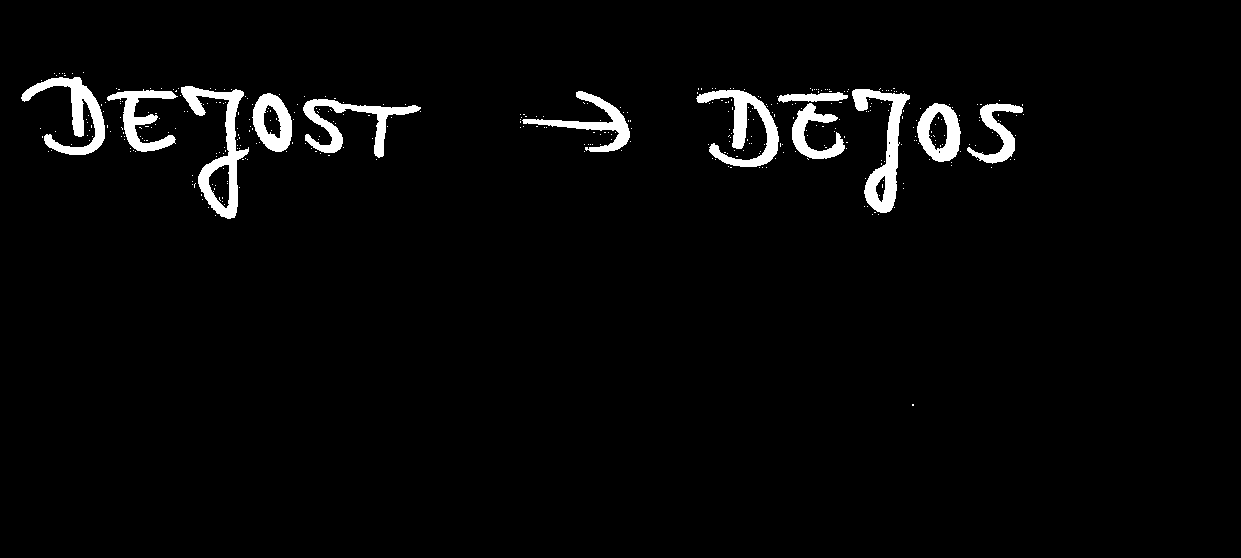 DEJOST → DEJOS